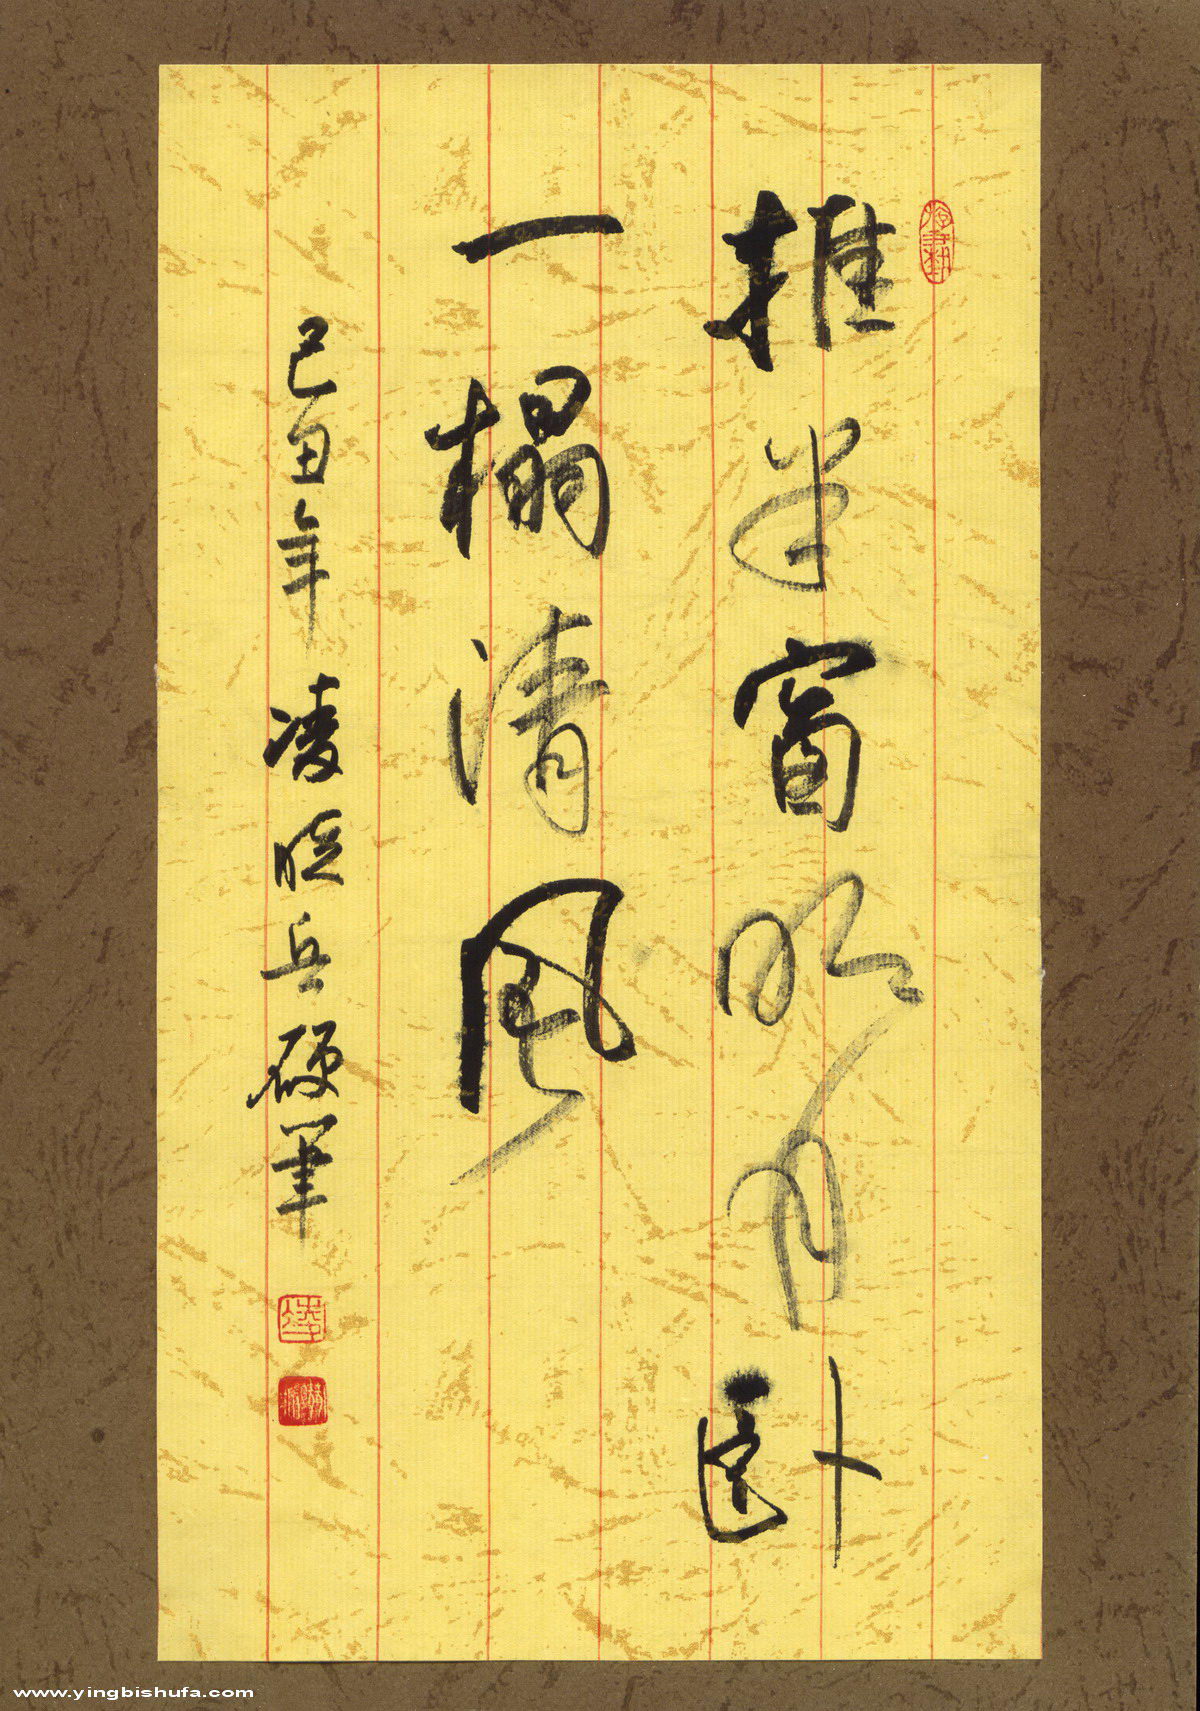 推半窗明月卧
一榻清风
己丑年凌晓兵硬笔
www.yingbishufa.com